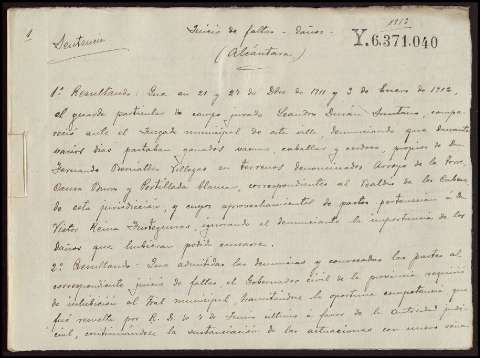 1912
Juicio de faltas - Daños -
Y.6.371.040
Sentencia
(Alcántara)
1º Resultando: Que en 21 y 27 de Dbre de 1911 y 3 de Enero de 1912,
el guarda particular de campo, jurado Leandro Durán, compa-
reció ante el Juzgado municipal de esta villa denunciando que durante
varios dias pastaban ganados vacuno, caballar y cerdoso, propios de Don
Fernando Villegas en terrenos denominados Arroyo de la
y Portillada blanca, correspondientes al Baldío de los
de esta jurisdicción, y cuyos aprovechamientos de pastos pertenecen á Dn
Víctor Reina, ignorando el denunciante la importancia de los
daños que hubieran podido causarse.
2º Resultando: Que admitidas las denuncias y convocadas las partes al
correspondiente juicio de faltas el Gobernador civil de la provincia requirió
de inhibición al municipal, tramitándose la oportuna competencia que
fué resuelta por R. D. de de Junio último á favor de la autoridad judi-
cial, continuándose la sustanciación de las actuaciones con nueva